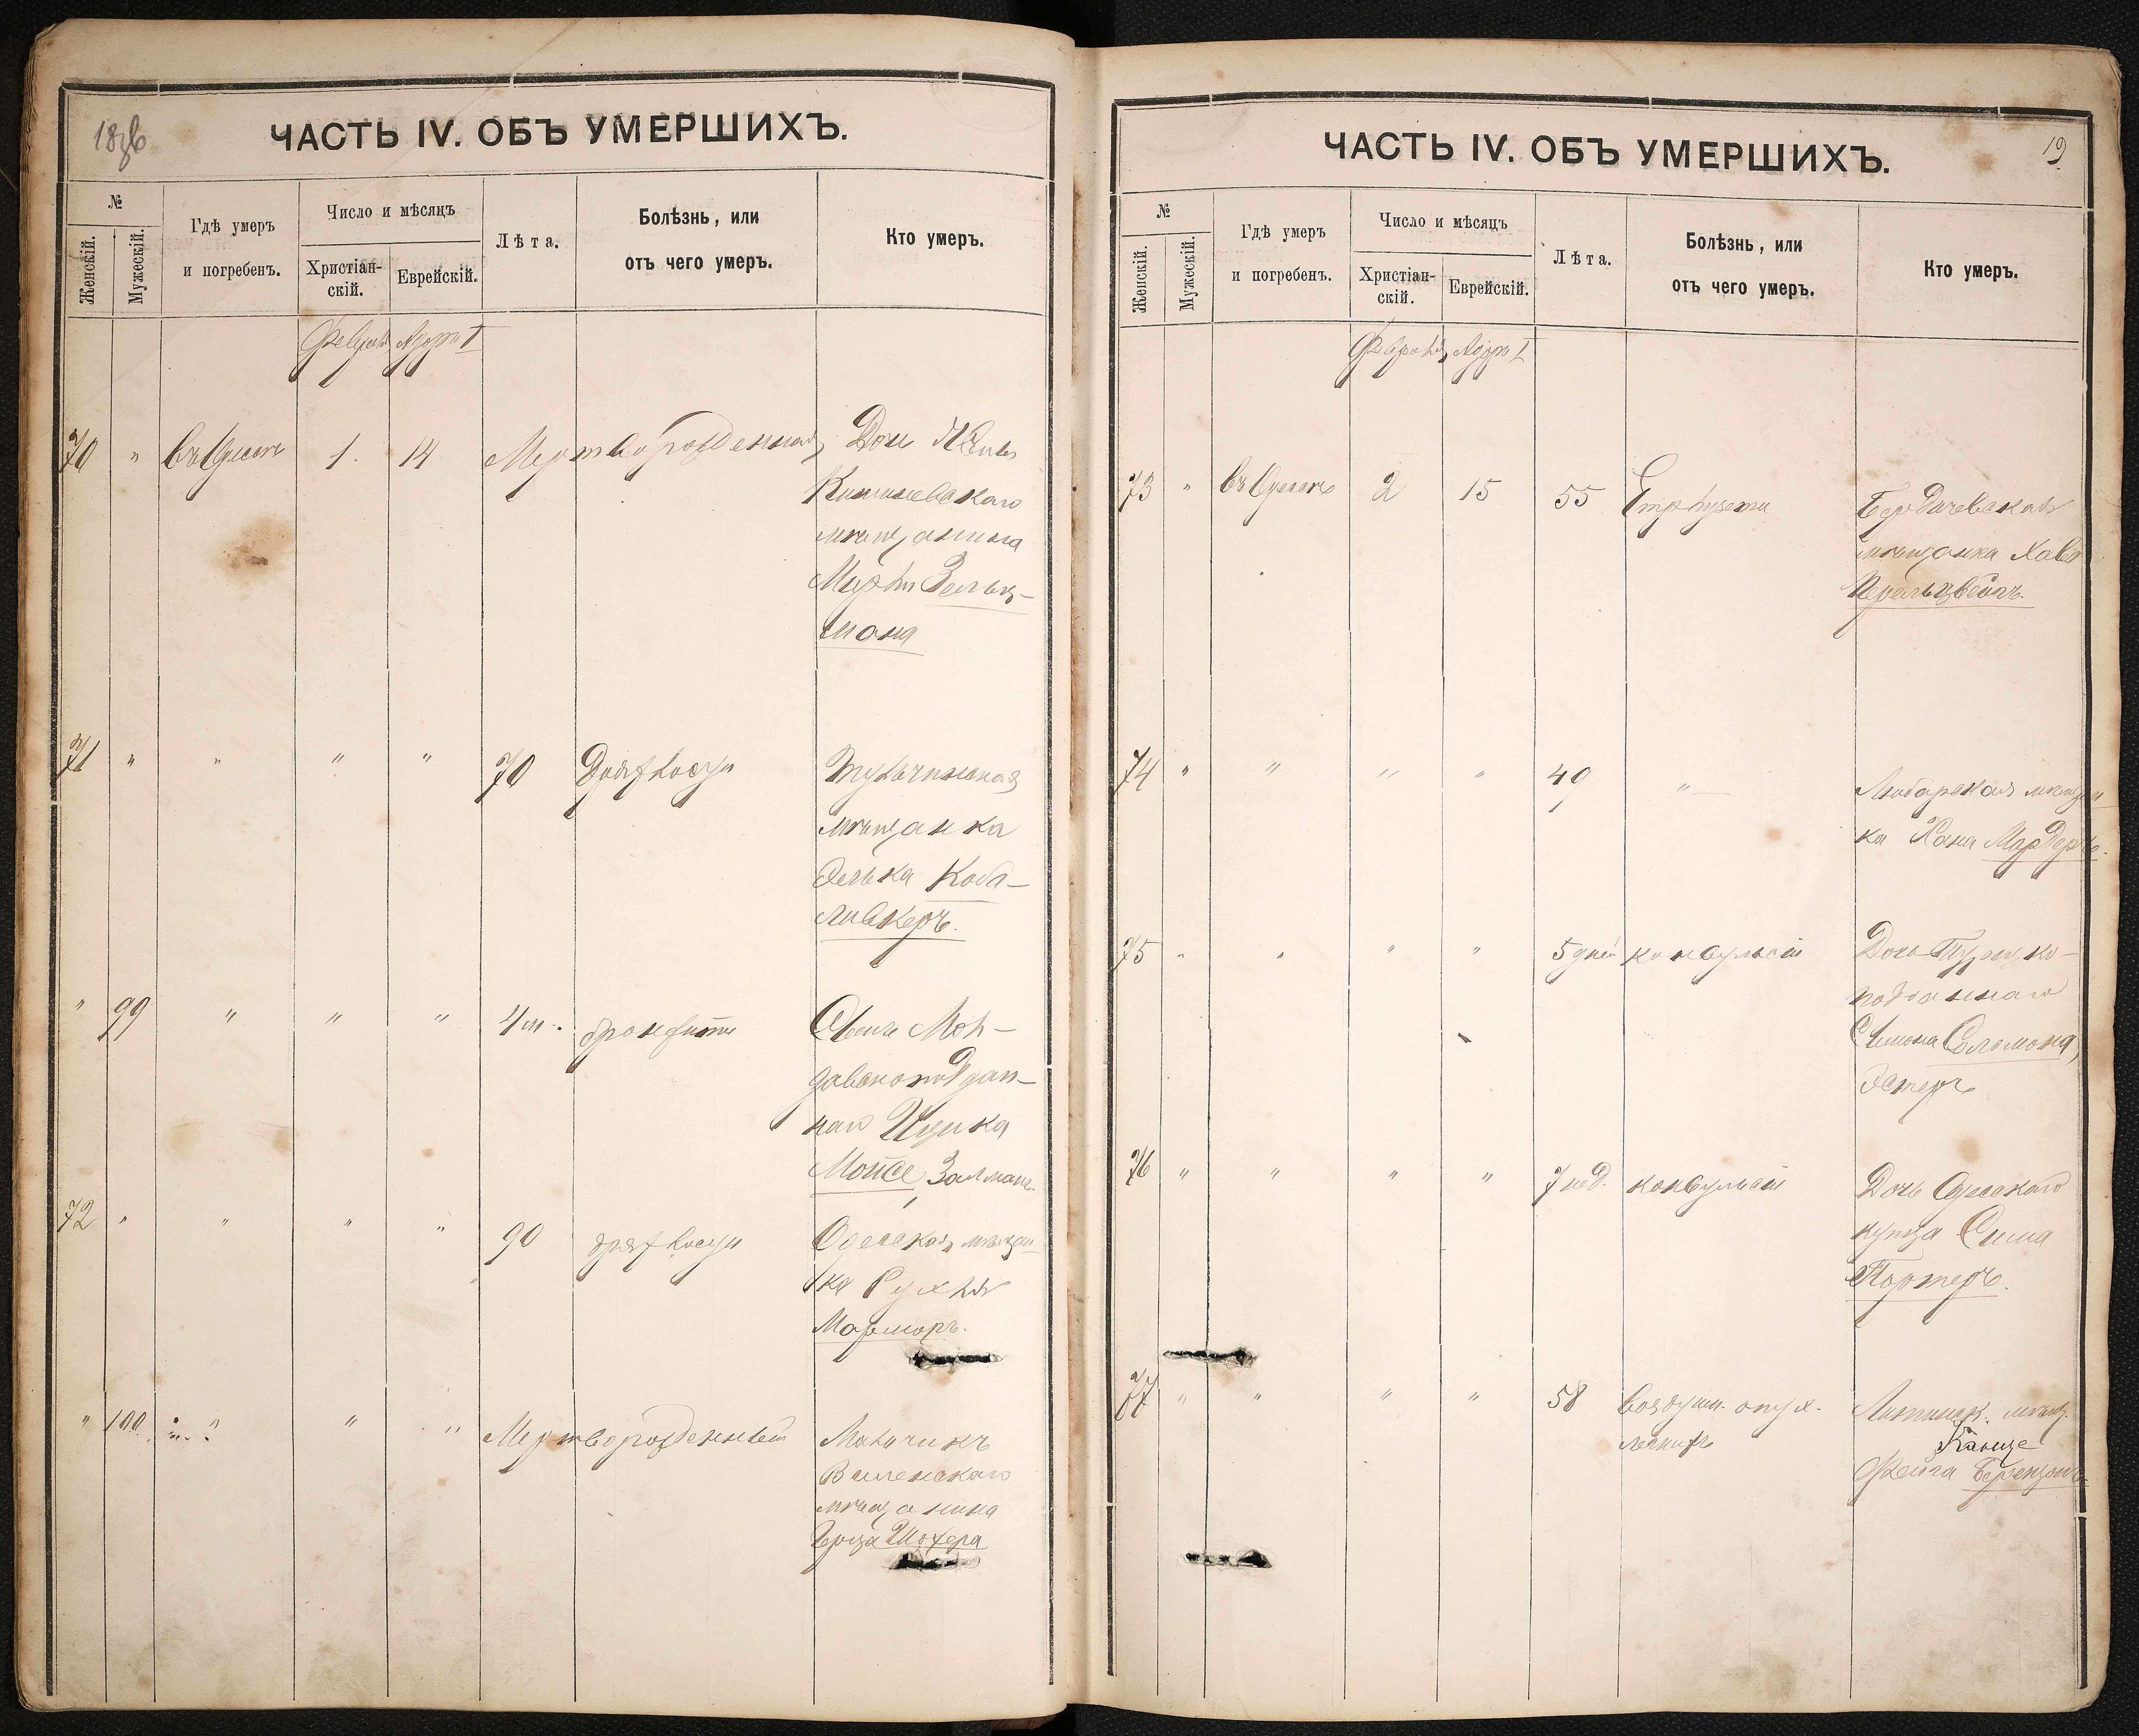 ЧАСТЬ IV. ОБЪ УМЕРШИХЪ.
№
Женскій.
Мужескій.
Гдѣ умеръ
и погребенъ.
Число и мѣсяцъ
Христіан-
скій.
Еврейскій.
Лѣта.
Болѣзнь, или
отъ чего умеръ.
Кто умеръ.
Февраля Адаръ I
70 " въ Одессѣ 1. 14 Мертворожденная Дочь
Кишиневскаго
мѣщанина
Зельц-
мана
71 " " " " 70 Дряхлость Тульчинская
мѣщанка
Элька Коба-
ливкеръ.
" 99 " " " 4 м. бронхитъ Сынъ Мол-
давскоподдан-
наго Ицика
Мойсе, Залманъ
72 " " " " 90 дряхлость Одесская мѣщан-
ка Рухля
Марморъ.
" 100 " " " Мертворожденный Мальчикъ
Виленскаго
мѣщанина
Герца Шехтера
ЧАСТЬ IV. ОБЪ УМЕРШИХЪ.
19
№
Женскій.
Мужескій.
Гдѣ умеръ
и погребенъ.
Число и мѣсяцъ
Христіан-
скій.
Еврейскій.
Лѣта.
Болѣзнь, или
отъ чего умеръ.
Кто умеръ.
Февраля Адаръ I
73 " въ Одессѣ 2 15 55 Emphysema Бердичевская
мѣщанка Хава
Перельцвейгъ.
74 " " " " 49 " Любарская мѣщан-
ка Хана Мардеръ.
75 " " " " 5 дней конвульсіи Дочь Турецко-
подданнаго
Симона Соломона,
Эстеръ
76 " " " " 7 нед. конвульсіи Дочь Одесскаго
купца Сима
Портеръ.
77 " " " " 58 Воздушн. опух. Литинск. мѣщ.
легкихъ
Фейга